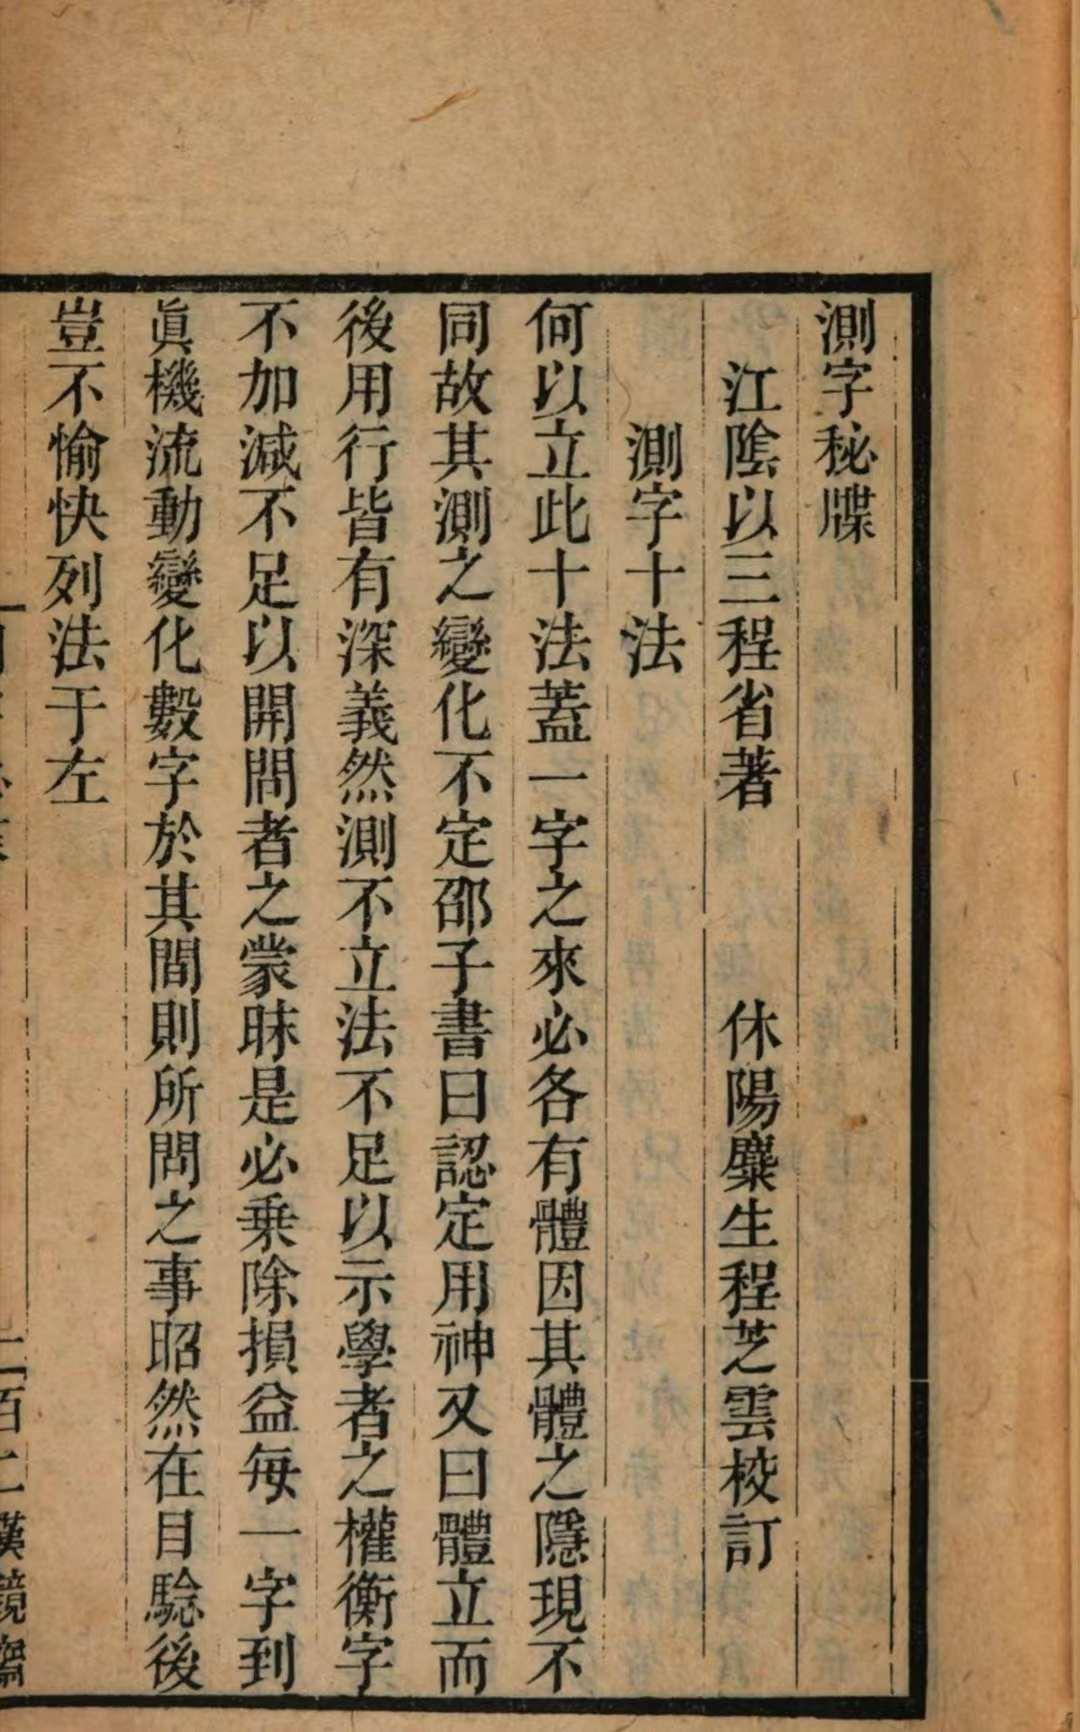 測字秘牒
江陰以三程省著　休陽麋生程芝雲校訂
測字十法
何以立此十法蓋一字之來必各有體因其體之隱現不
同故其測之變化不定邵子書曰認定用神又曰體立而
後用行皆有深義然測不立法不足以示學者之權衡字
不加減不足以開問者之蒙昧是必乗除損益每一字到
眞機流動變化數字於其間則所問之事昭然在目騐後
豈不愉快列法于左
百二漢鏡齋